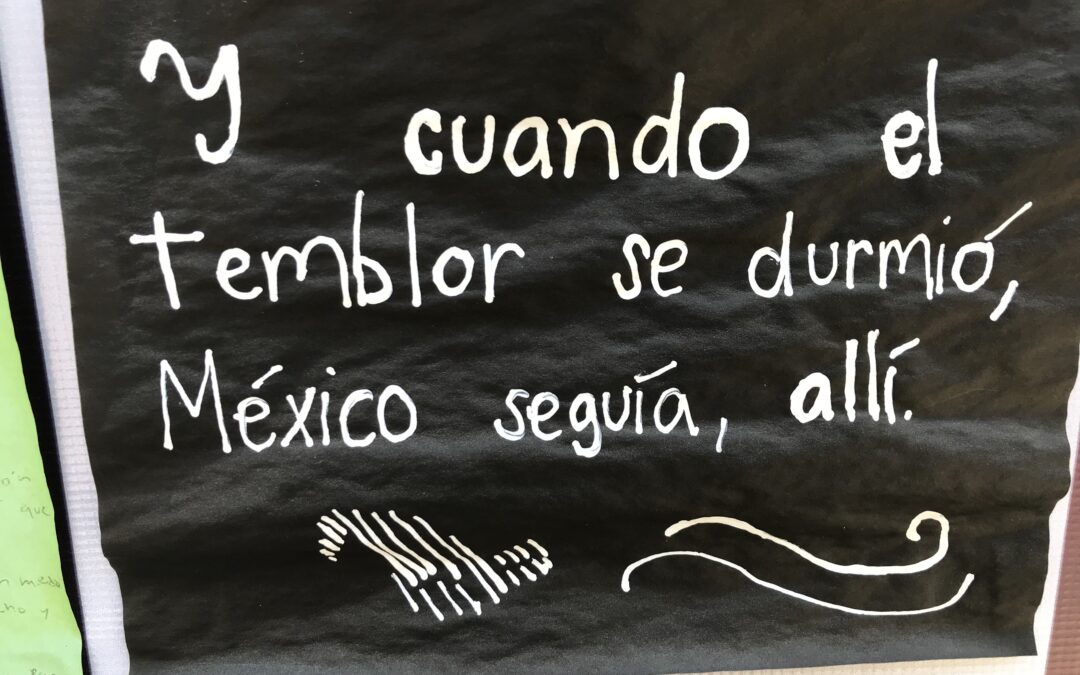 Y cuando el
temblor se durmió,
México seguía, allí.
ón
que
n miedo
y